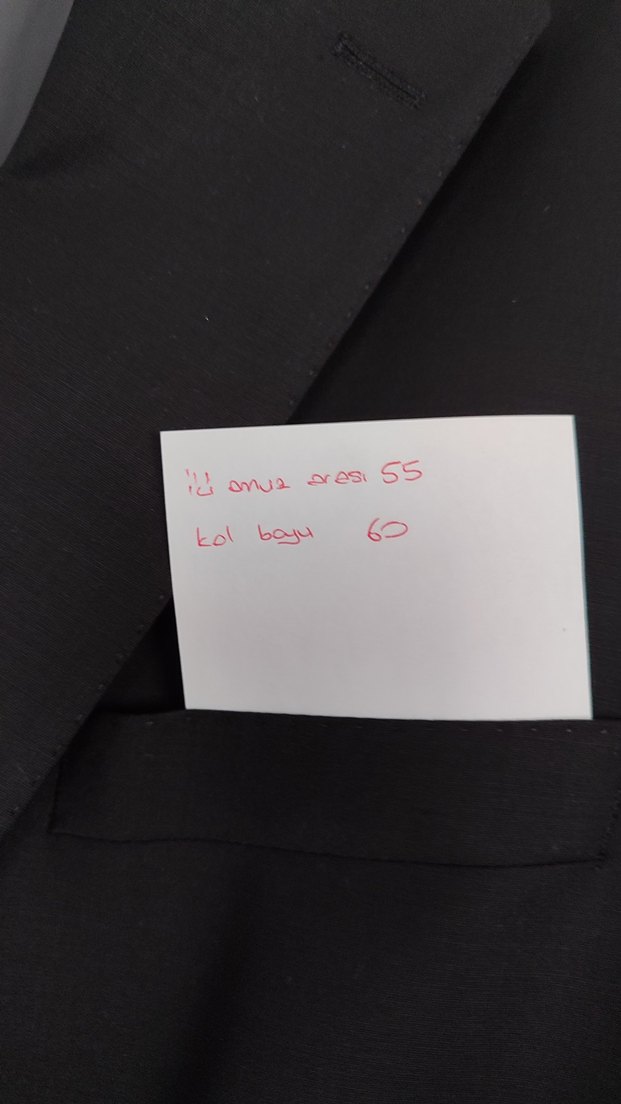 iki omuz arası 55
kol boyu 60